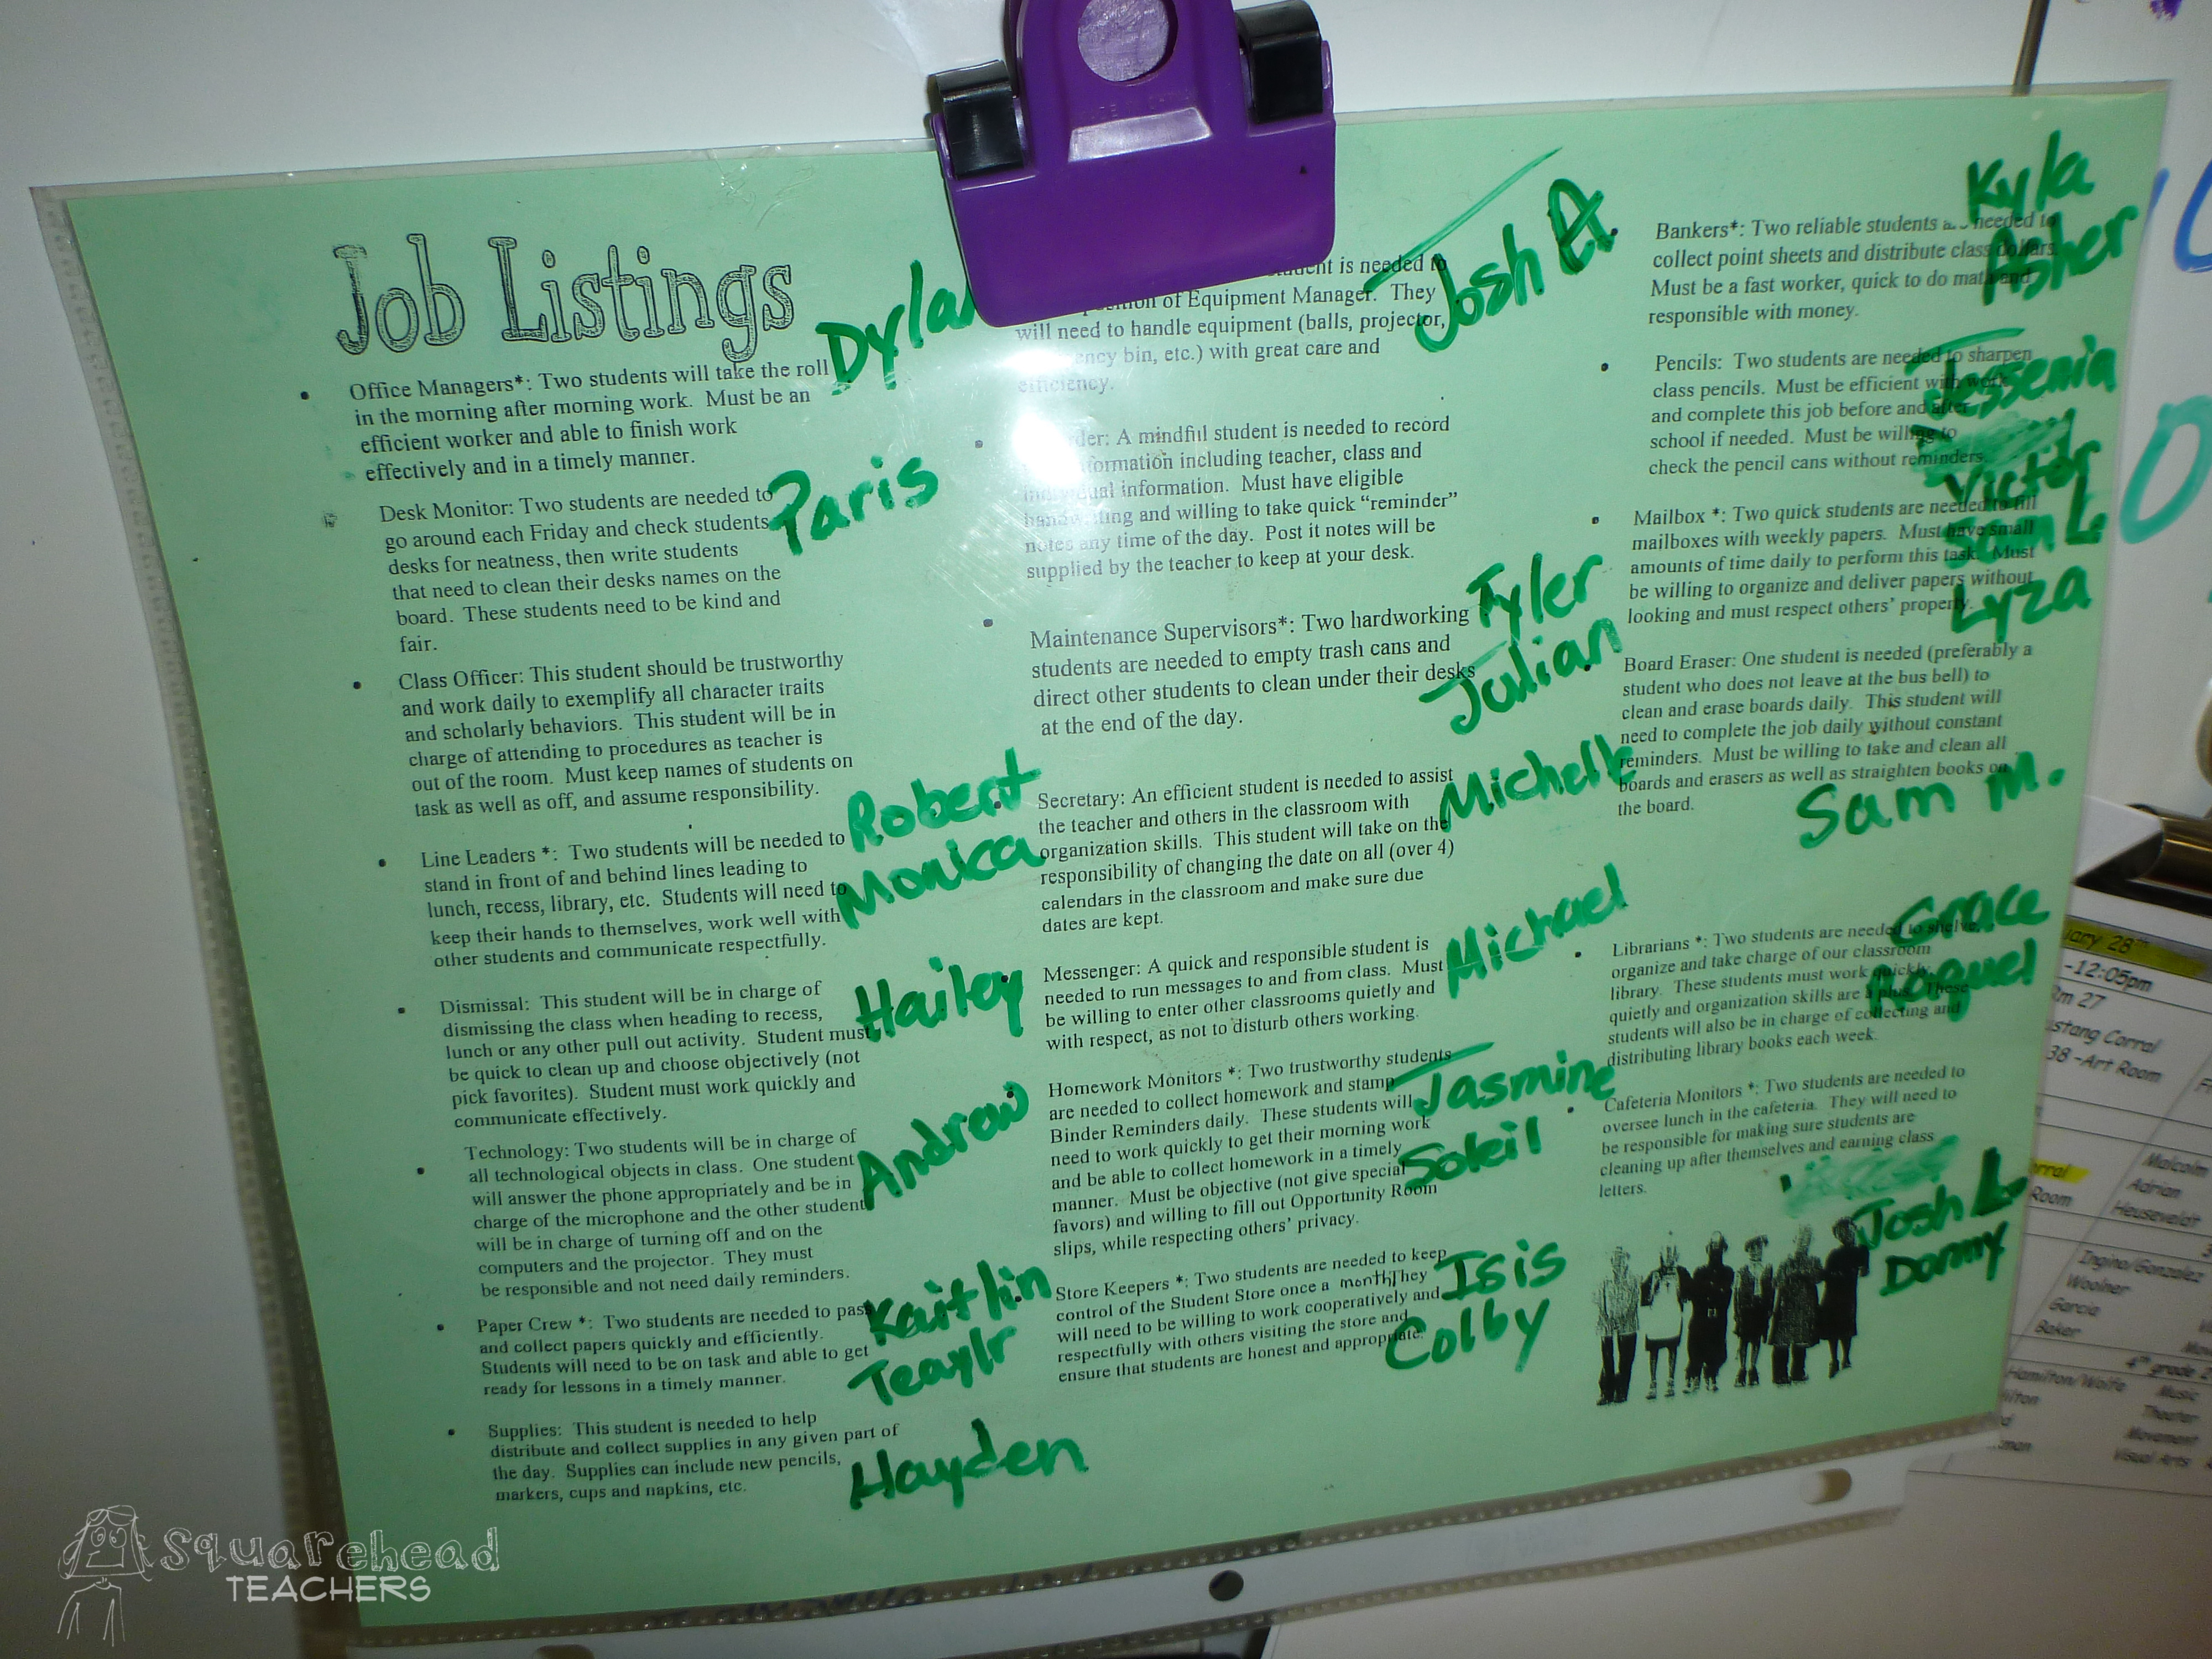 Job Listings
Office Managers*: Two students will take the roll
in the morning after morning work. Must be an
efficient worker and able to finish work
effectively and in a timely manner.
Dylan
Desk Monitor: Two students are needed to
go around each Friday and check students
desks for neatness, then write students
that need to clean their desks names on the
board. These students need to be kind and
fair.
Paris
Class Officer: This student should be trustworthy
and work daily to exemplify all character traits
and scholarly behaviors. This student will be in
charge of attending to procedures as teacher is
out of the room. Must keep names of students on
task as well as off, and assume responsibility.
Line Leaders *: Two students will be needed to
stand in front of and behind lines leading to
lunch, recess, library, etc. Students will need to
keep their hands to themselves, work well with
other students and communicate respectfully.
Robert
Monica
Dismissal: This student will be in charge of
dismissing the class when heading to recess,
lunch or any other pull out activity. Student must
be quick to clean up and choose objectively (not
pick favorites). Student must work quickly and
communicate effectively.
Hailey
Technology: Two students will be in charge of
all technological objects in class. One student
will answer the phone appropriately and be in
charge of the microphone and the other student
will be in charge of turning off and on the
computers and the projector. They must
be responsible and not need daily reminders.
Andrew
Paper Crew *: Two students are needed to pass
and collect papers quickly and efficiently.
Students will need to be on task and able to get
ready for lessons in a timely manner.
Kaitlin
Teaylr
Supplies: This student is needed to help
distribute and collect supplies in any given part of
the day. Supplies can include new pencils,
markers, cups and napkins, etc.
Hayden
is needed to
of Equipment Manager. They
will need to handle equipment (balls, projector,
bin, etc.) with great care and
efficiency.
Josh A.
A mindful student is needed to record
information including teacher, class and
information. Must have eligible
handwriting and willing to take quick "reminder"
notes any time of the day. Post it notes will be
supplied by the teacher to keep at your desk.
Maintenance Supervisors*: Two hardworking
students are needed to empty trash cans and
direct other students to clean under their desks
at the end of the day.
Tyler
Julian
Secretary: An efficient student is needed to assist
the teacher and others in the classroom with
organization skills. This student will take on the
responsibility of changing the date on all (over 4)
calendars in the classroom and make sure due
dates are kept.
Michelle
Messenger: A quick and responsible student is
needed to run messages to and from class. Must
be willing to enter other classrooms quietly and
with respect, as not to disturb others working.
Michael
Homework Monitors *: Two trustworthy students
are needed to collect homework and stamp
Binder Reminders daily. These students will
need to work quickly to get their morning work
and be able to collect homework in a timely
manner. Must be objective (not give special
favors) and willing to fill out Opportunity Room
slips, while respecting others' privacy.
Jasmine
Soleil
Store Keepers *: Two students are needed to keep
control of the Student Store once a month They
will need to be willing to work cooperatively and
respectfully with others visiting the store and
ensure that students are honest and appropriate.
Isis
Colby
Bankers*: Two reliable students are needed to
collect point sheets and distribute class dollars.
Must be a fast worker, quick to do math and
responsible with money.
Kyla
Asher
Pencils: Two students are needed to sharpen
class pencils. Must be efficient with work
and complete this job before and after
school if needed. Must be willing to
check the pencil cans without reminders.
Jessenia
Victor
Mailbox *: Two quick students are needed to fill
mailboxes with weekly papers. Must have small
amounts of time daily to perform this task. Must
be willing to organize and deliver papers without
looking and must respect others' property.
Sam L.
Lyza
Board Eraser: One student is needed (preferably a
student who does not leave at the bus bell) to
clean and erase boards daily. This student will
need to complete the job daily without constant
reminders. Must be willing to take and clean all
boards and erasers as well as straighten books on
the board.
Sam M.
Librarians *: Two students are needed to shelve,
organize and take charge of our classroom
library. These students must work quickly,
quietly and organization skills are a plus. These
students will also be in charge of collecting and
distributing library books each week.
Grace
Cafeteria Monitors *: Two students are needed to
oversee lunch in the cafeteria. They will need to
be responsible for making sure students are
cleaning up after themselves and earning class
letters.
Josh L.
Danny
28th
-12:05pm
Rm 27
Corral
38 -Art Room
Room
Malcolm
Adrian
Heuseveldt
Ingino/Gonzalez
Woolner
Garcia
Baker
4th grade
Hamilton/Wolfe
Music
Theater
Movement
Visual Arts
Squarehead
TEACHERS